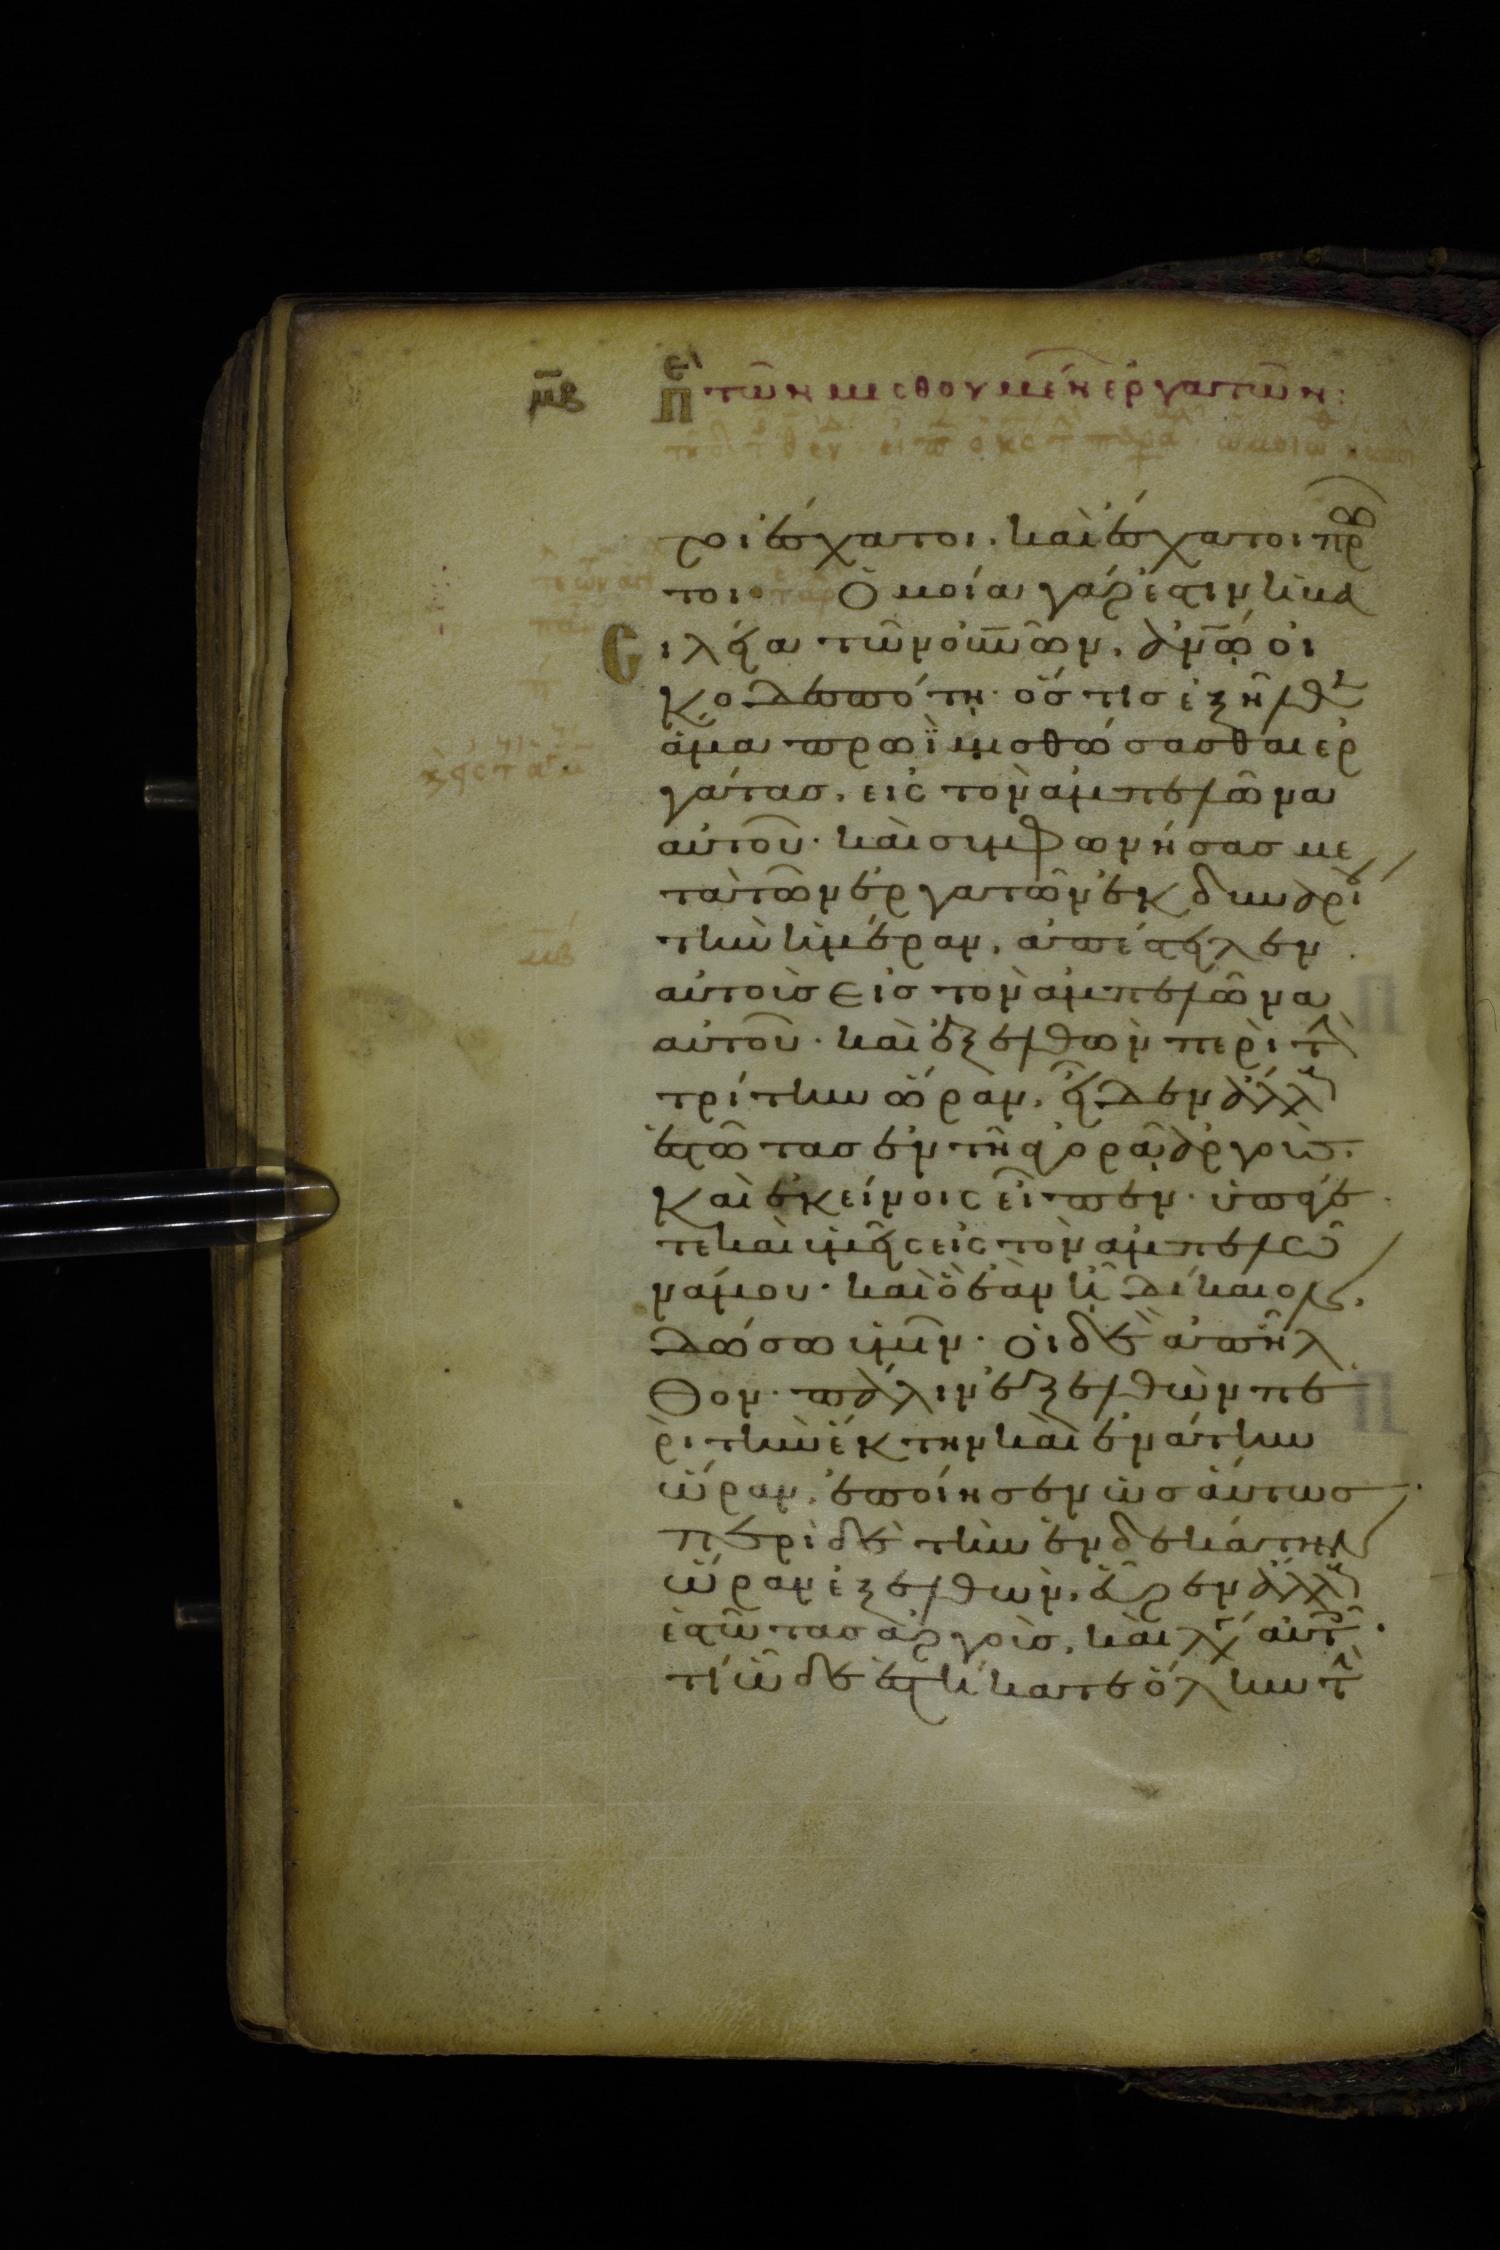 μβ πε τῶν μεσθουμέν ἐργατῶν:
τοι ἔσχατοι. καὶ ἔσχατοι πρῶ
τοι· Ὁμοία γάρ ἐστιν ἡ βα
σιλεία τῶν οὐνῶν, ἀνῳ οἰ
κοδεσπότη· ὅστις ἐξῆλθεν
ἅμα πρωῒ μισθώσασθαι ἐρ
γάτας, εἰς τὸν ἀμπελῶνα
αὐτοῦ· καὶ συμφωνήσας με
τὰ τῶν ἐργατῶν ἐκ δηναρίου
τὴν ἡμέραν, ἀπέστειλεν
αὐτοὺς εἰς τὸν ἀμπελῶνα
αὐτοῦ· καὶ ἐξελθὼν περὶ τὴν
τρίτην ὥραν, εἶδεν ἄλλους
ἑστῶτας ἐν τῇ ἀγορᾷ ἀργούς.
Καὶ ἐκείνοις εἶπεν· ὑπάγε
τε καὶ ὑμεῖς εἰς τὸν ἀμπελῶ
νά μου· καὶ ὃ ἐὰν ᾖ δίκαιον,
δώσω ὑμῖν· οἱ δὲ ἀπῆλ
θον· πάλιν ἐξελθὼν πε
ρὶ τὴν ἕκτην καὶ ἐνάτην
ὥραν, ἐποίησεν ὡσαύτως
περὶ δὲ τὴν ἑνδεκάτην
ὥραν ἐξελθὼν, εὗρεν ἄλλους
ἑστῶτας ἀργούς, καὶ λέγει αὐτοῖς·
τί ὧδε ἑστήκατε ὅλην τὴν